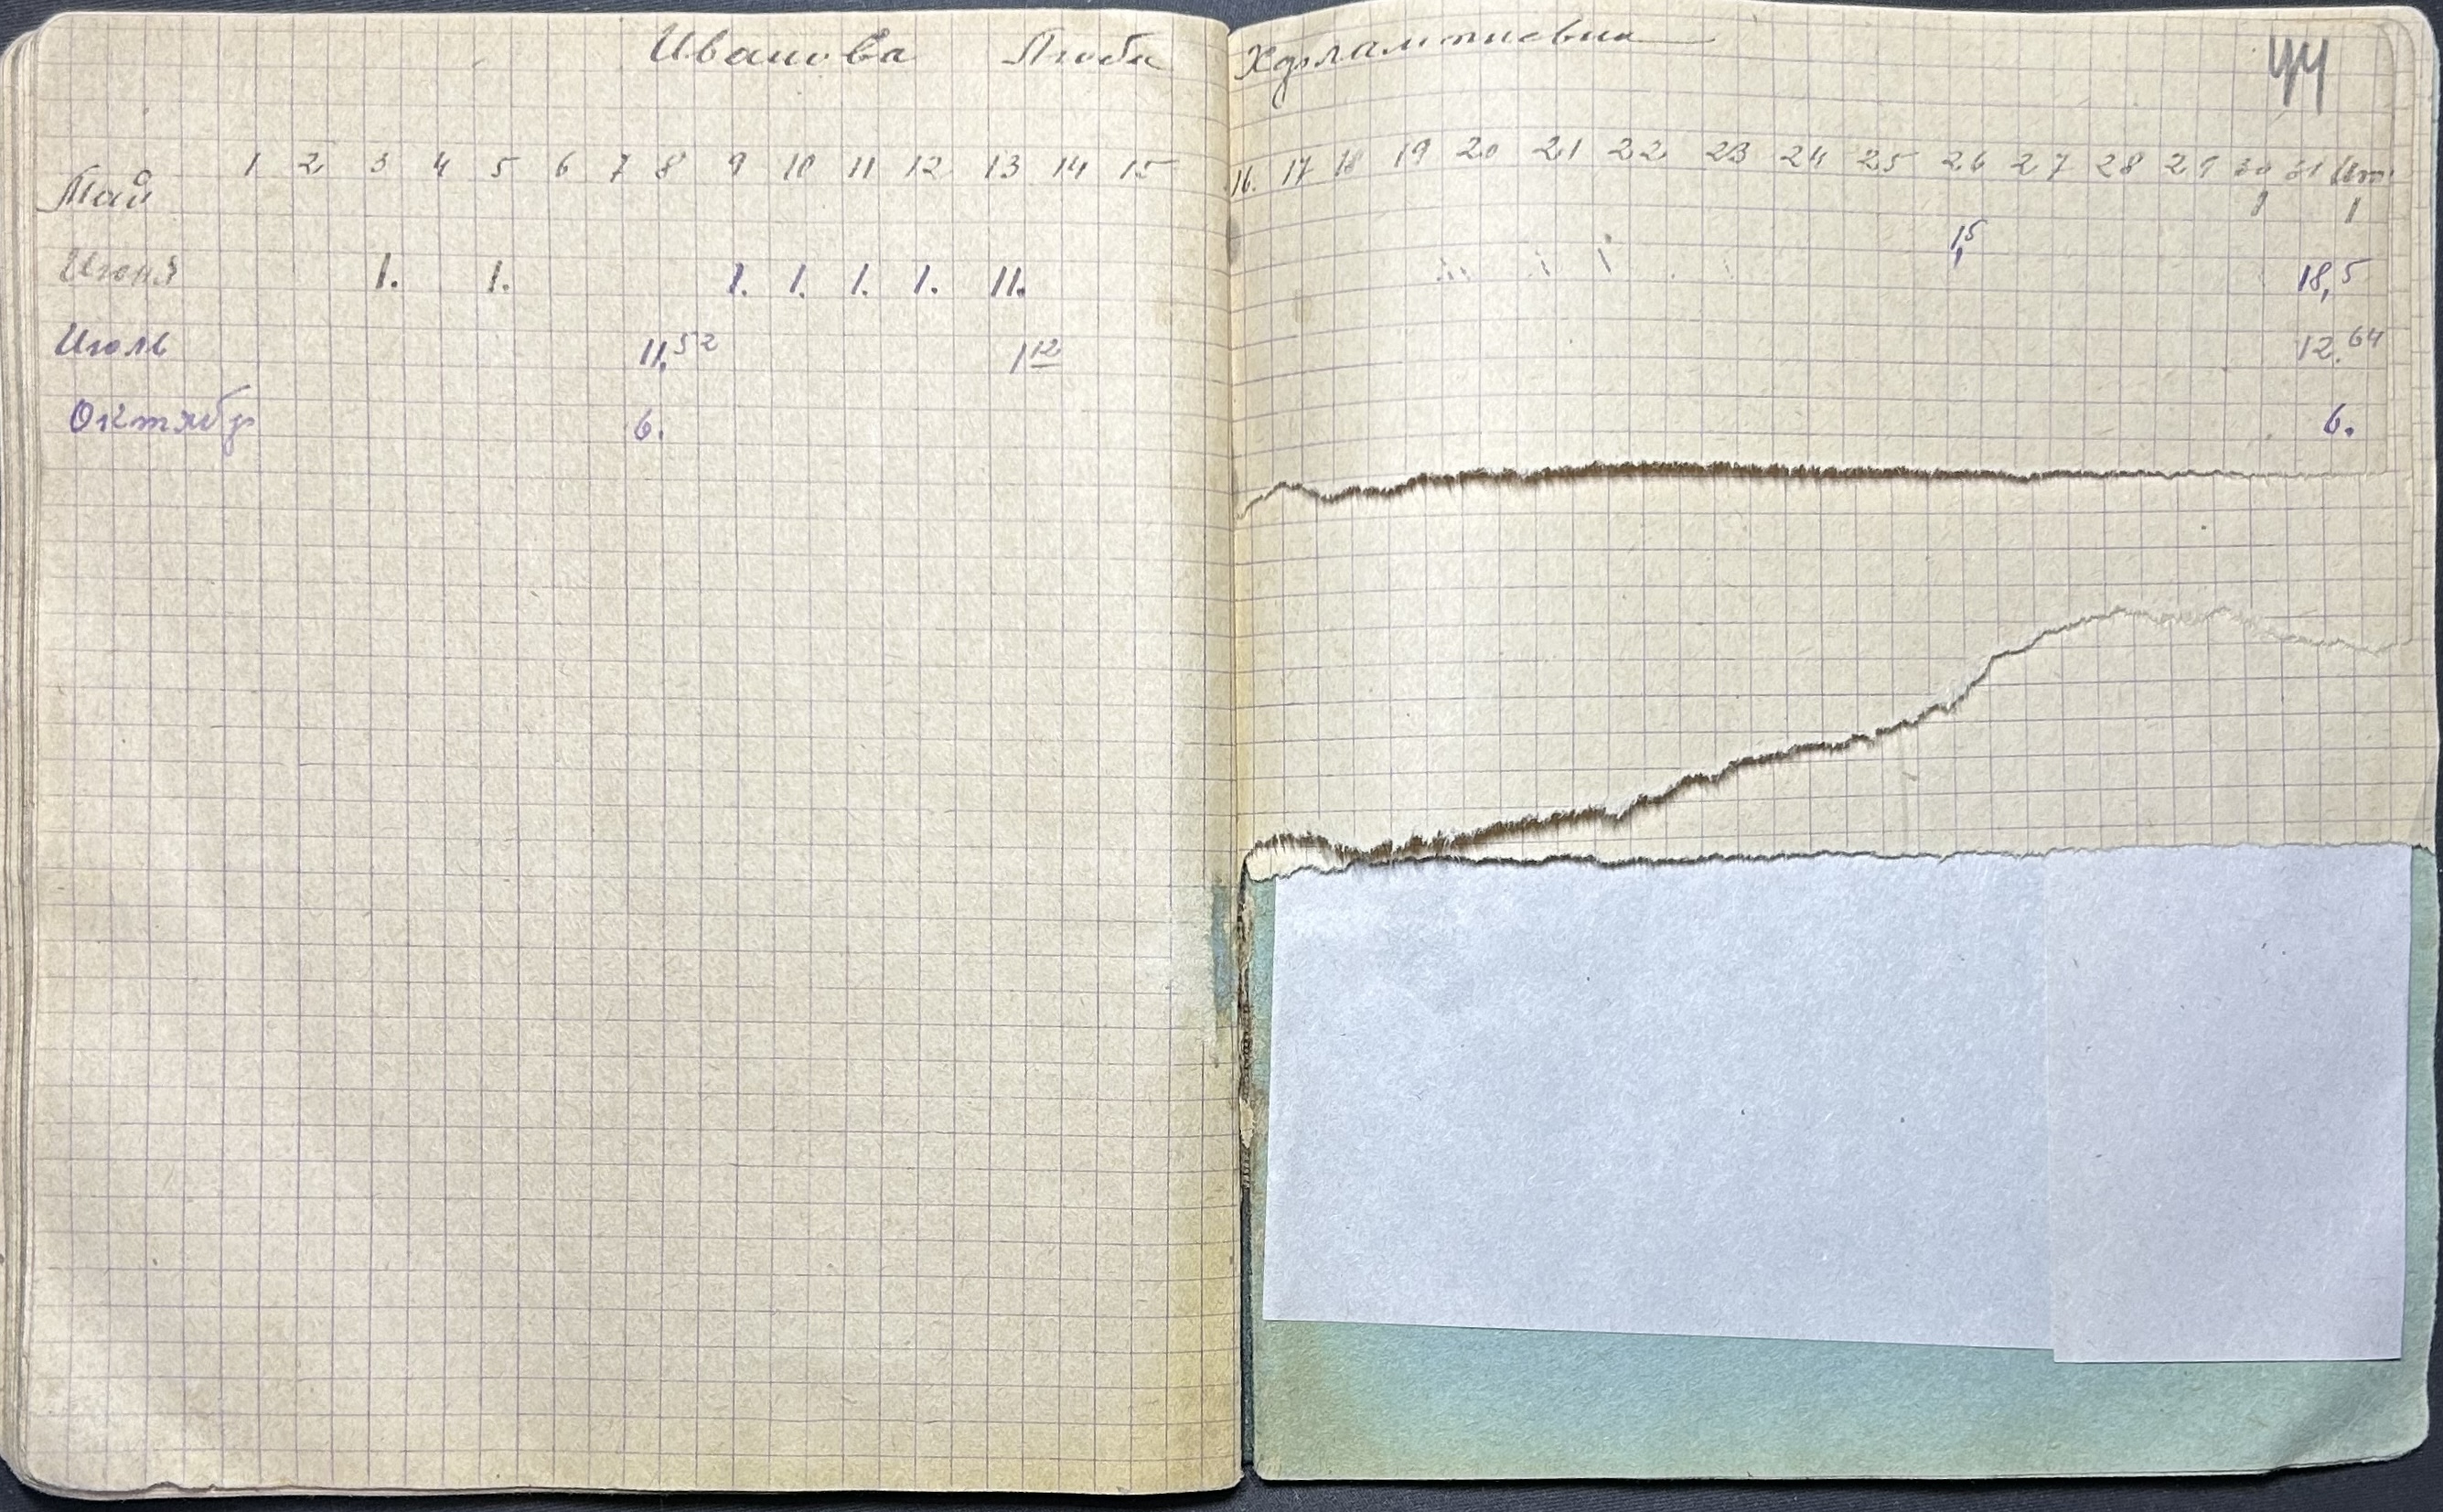 Иванова Люба Харлампиевна
44
1 2 3 4 5 6 7 8 9 10 11 12 13 14 15 16. 17 18 19 20 21 22 23 24 25 26 27 28 29 30 31 Ит.
Май 1 1
Июня 1. 1. 1. 1. 1. 1. 11. 1,5 18,5
Июль 11.52 1 12 12.64
Октябр 6. 6.